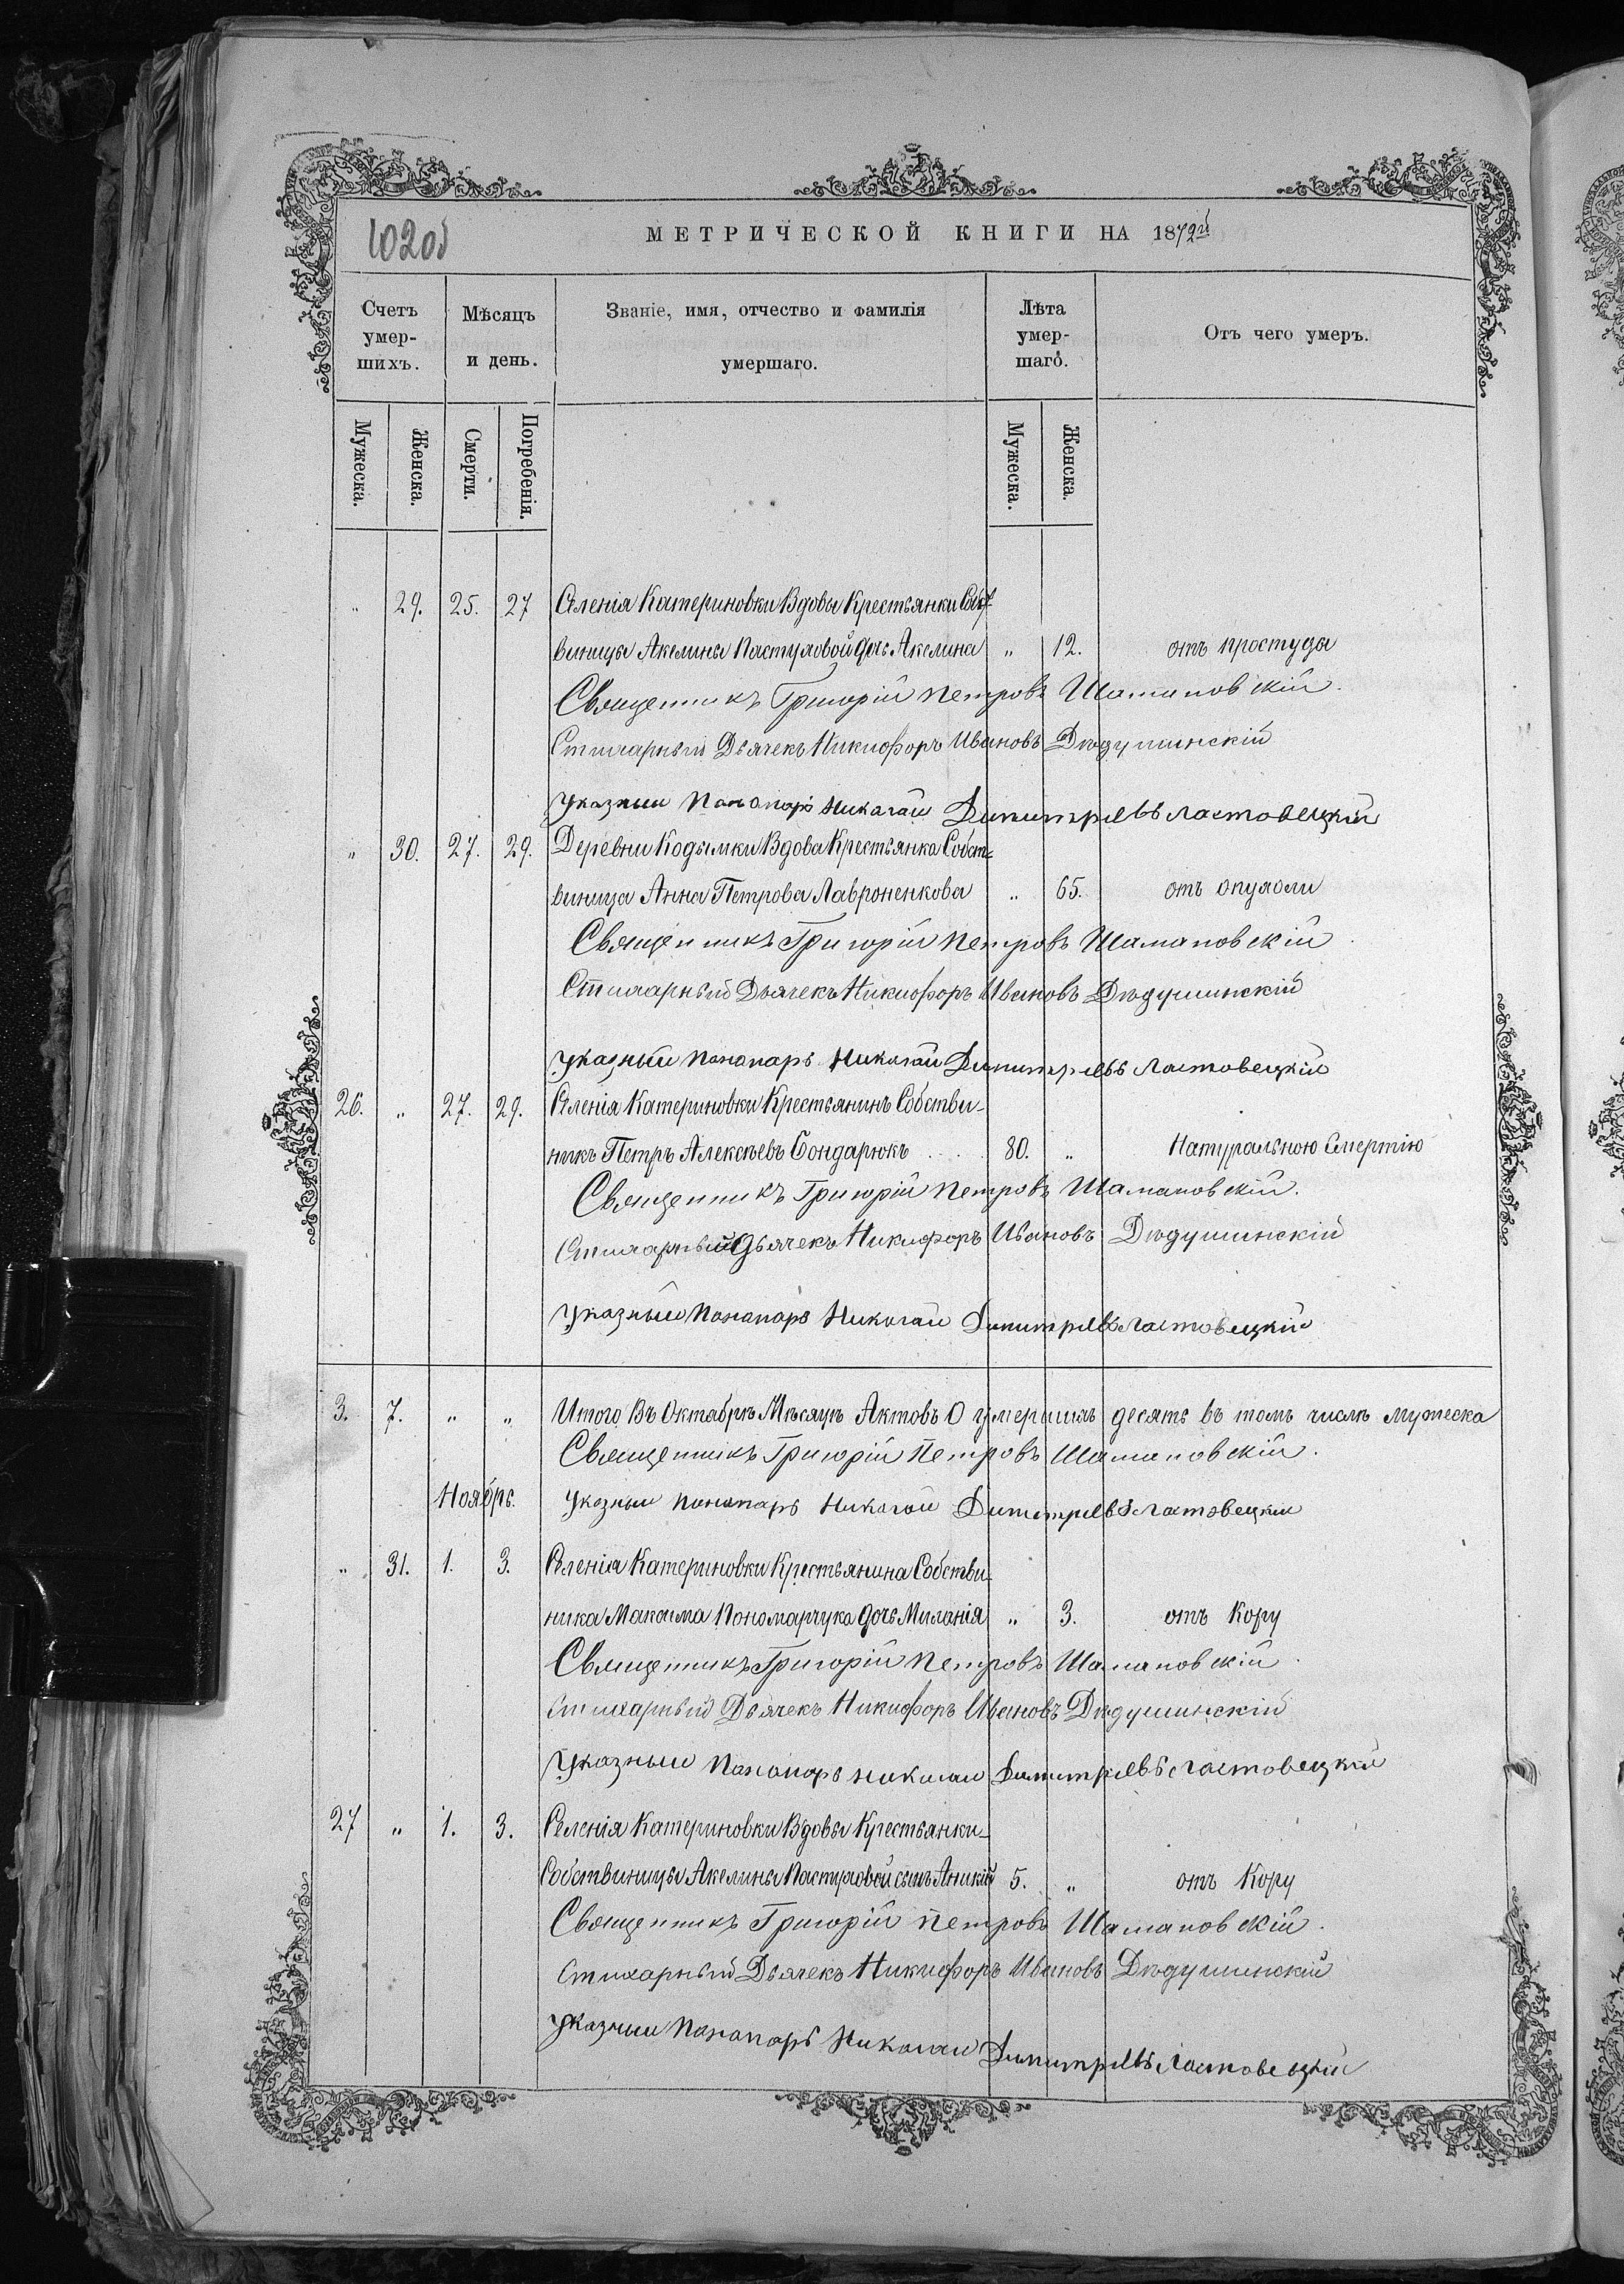 1020об
МЕТРИЧЕСКОЙ КНИГИ НА 1872й
Счетъ умер-шихъ. Мѣсяцъ и день. Званіе, имя, отчество и фамилія умершаго. Лѣта умер-шаго. Отъ чего умеръ.
Мужеска. Женска. Смерти. Погребенія. Мужеска. Женска.
" 29. 25. 27 Селенія Катериновки Вдовы Крестьянки Собст
виницы Акелины Пастуховой дочь Акелина " 12. отъ простуды
Священникъ Григорій Петровъ Шамановскій.
Стихарный Дьячекъ Никифоръ Ивановъ Дѣдушинскій
Указный Понамарь Николай Димитріевъ Ластовецкій
" 30. 27. 29. Деревни Кодымки Вдова Крестьянка Собст=
виница Анна Петрова Лавроненкова " 65. отъ опухоли
Священникъ Григорій Петровъ Шамановскій
Стихарный Дьячекъ Никифоръ Ивановъ Дѣдушинскій
Указный Понамарь Николай Димитріевъ Ластовецкій
26. " 27. 29. Селенія Катериновки Крестьянинъ Собстви-
никъ Петръ Алексѣевъ Бондарюкъ 80. " Натуральною Смертію
Священникъ Григорій Петровъ Шамановскій.
Стихарный Дьячекъ Никифоръ Ивановъ Дѣдушинскій
Указный Понамарь Николай Димитріевъ Ластовецкій
3. 7. " " Итого Въ Октабрѣ Мѣсяцѣ Актовъ О умершихъ десять въ томъ числѣ мужеска
Священникъ Григорій Петровъ Шамановскій.
Ноябрь. Указный Понамарь Николай Димитріевъ Ластовецкій
" 31. 1. 3. Селенія Катериновки Крестьянина Собстви-
ника Максима Пономарчука дочь Миланія " 3. отъ Кору
Священникъ Григорій Петровъ Шамановскій
Стихарный Дьячекъ Никифоръ Ивановъ Дѣдушинскій
Указный Понамарь Николай Димитріевъ Ластовецкій
27 " 1. 3. Селенія Катериновки Вдовы Крестьянки-
Собствиницы Акелины Пастуховой сынъ Аникій 5. " отъ Кору
Священникъ Григорій Петровъ Шамановскій.
Стихарный Дьячекъ Никифоръ Ивановъ Дѣдушинскій
Указный Понамарь Николай Димитріевъ Ластовецкій